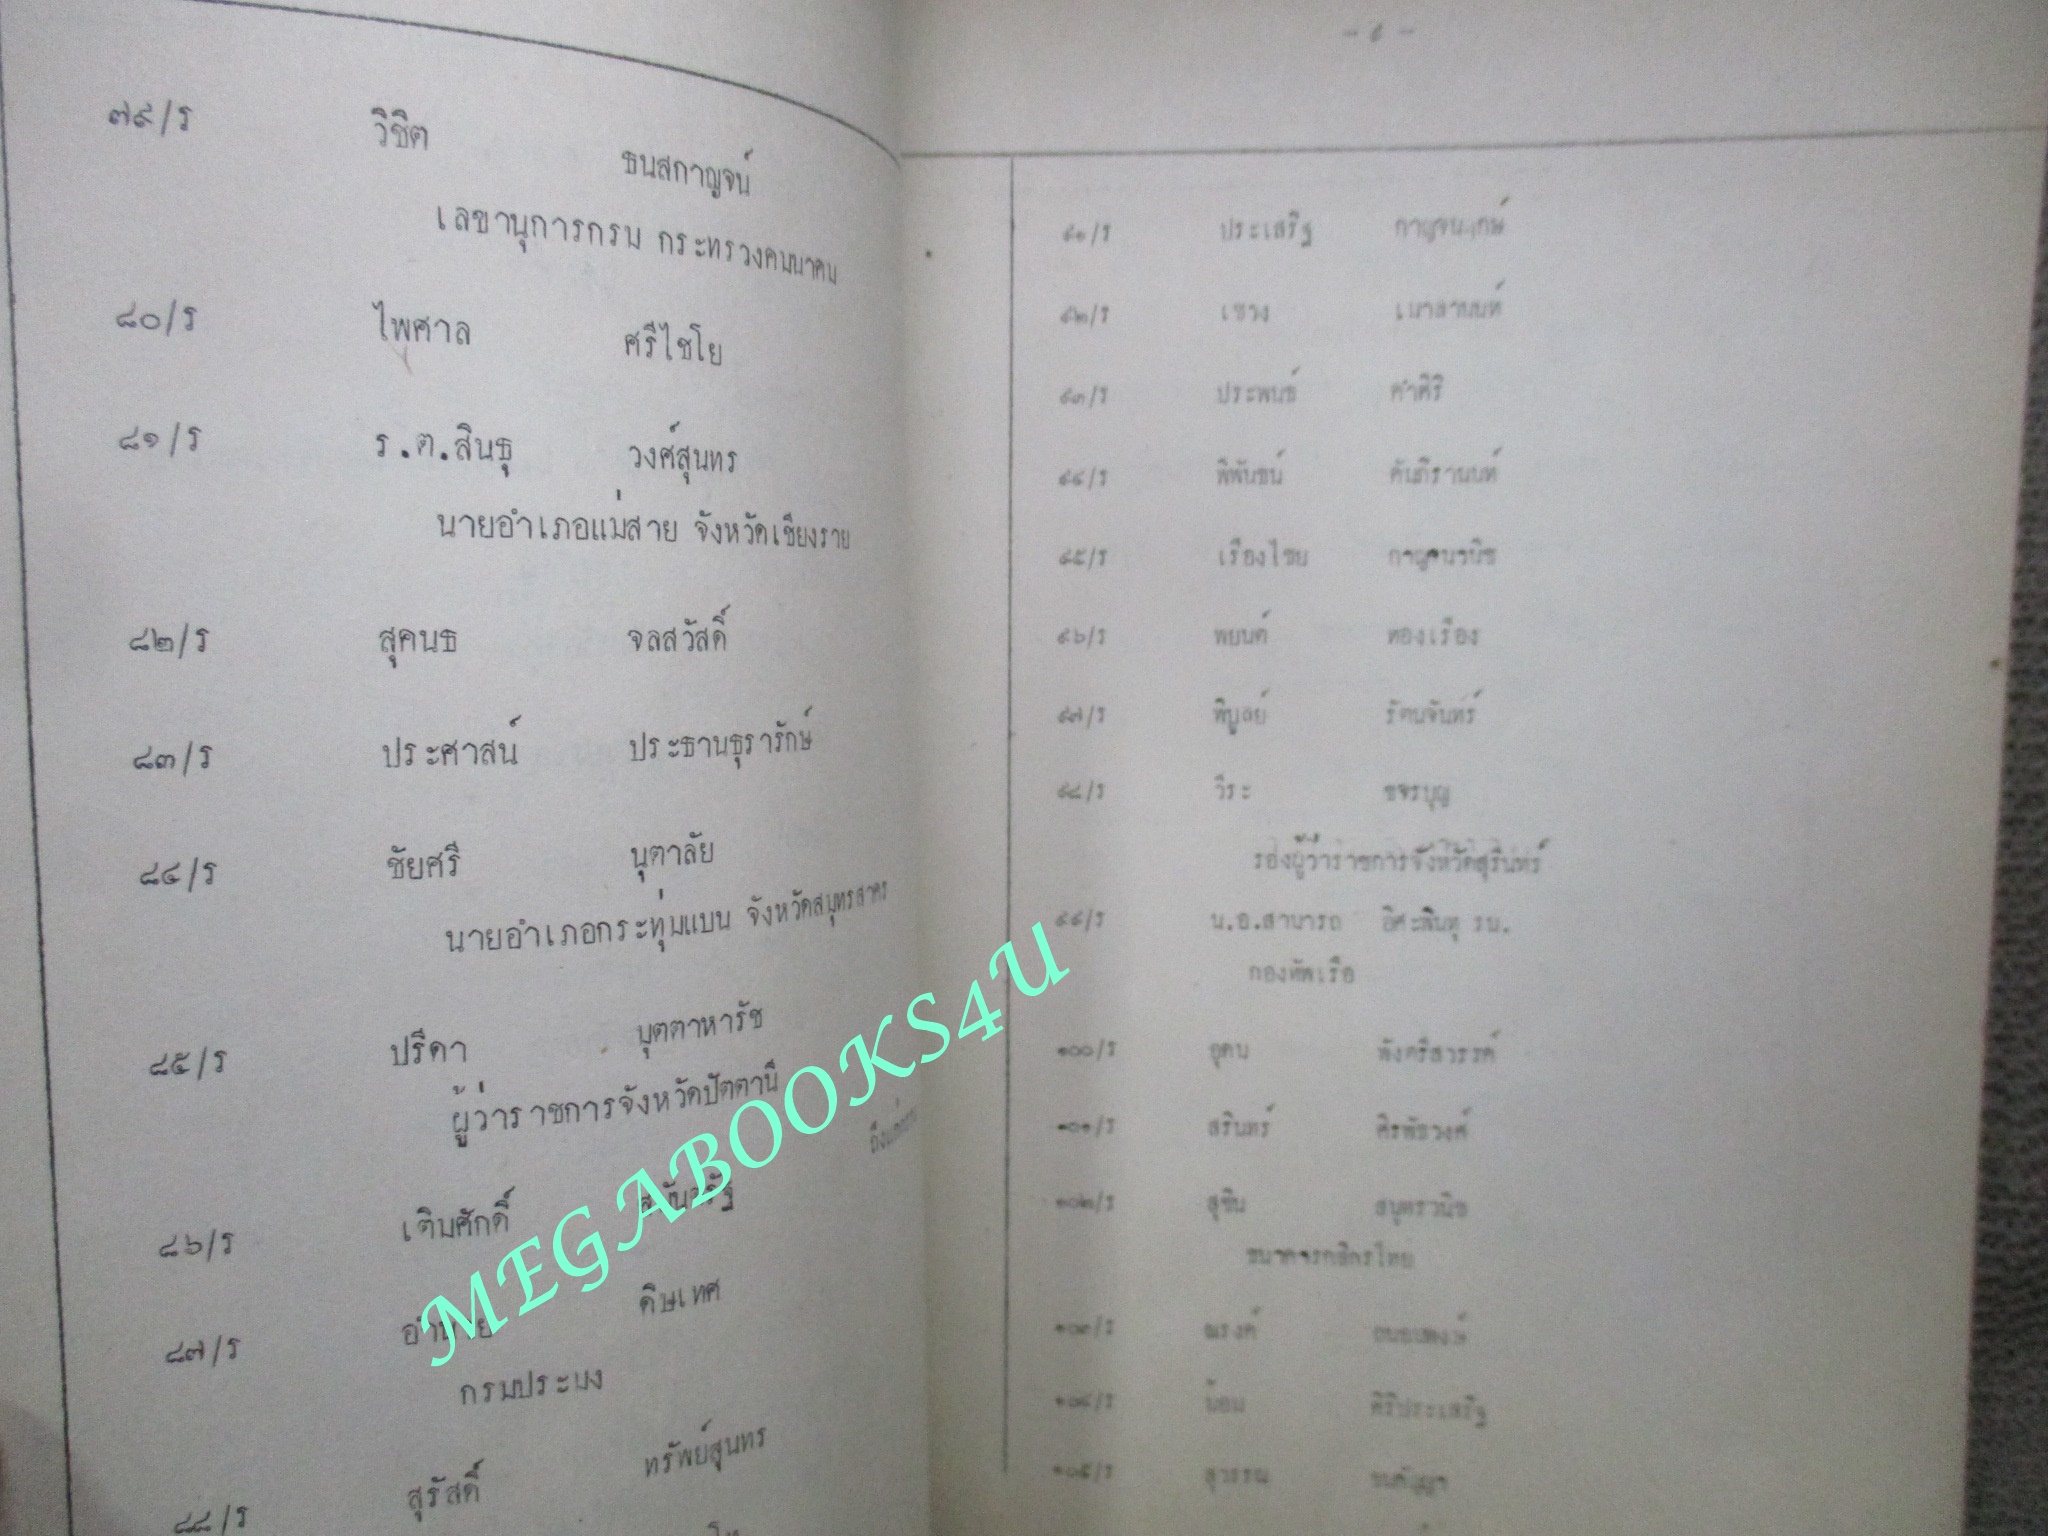 ๗๙/ร วิชิต ธนสกาญจน์
เลขานุการกรม กระทรวงคมนาคม
๘๐/ร ไพศาล ศรีไชโย
๘๑/ร ร.ต.สินธุ วงศ์สุนทร
นายอำเภอแม่สาย จังหวัดเชียงราย
๘๒/ร สุคนธ จลสวัสดิ์
๘๓/ร ประศาสน์ ประธานธุรารักษ์
๘๔/ร ชัยศรี นุตาลัย
นายอำเภอกระทุ่มแบน จังหวัดสมุทรสาคร
๘๕/ร ปรีดา มุตตาหารัช
ผู้ว่าราชการจังหวัดปัตตานี
๘๖/ร เติมศักดิ์
๘๗/ร ดิษเทศ
กรมประมง
๘๘/ร สุรัสดิ์ ทรัพย์สุนทร
MEGABOOKS4U
- ๙ -
๙๑/ร ประเสริฐ
๙๒/ร เชวง
๙๓/ร ประพนธ์ คำศิริ
๙๔/ร พิพันธน์ คัมภิรานนท์
๙๕/ร เรืองไชย กาญจนวนิช
๙๖/ร พยนต์ ทองเรือง
๙๗/ร พิบูลย์ รัตนจันทร์
๙๘/ร วีระ ขจรบุญ
รองผู้ว่าราชการจังหวัดสุรินทร์
๙๙/ร น.อ.สามารถ อิศะพินทุ รน.
กองทัพเรือ
๑๐๐/ร อุดม พังศรีสวรรค์
๑๐๑/ร สรินทร์ ศิรพัธวงศ์
๑๐๒/ร สุชิน สมุทรวนิช
ธนาคารกสิกรไทย
๑๐๓/ร ณรงค์
๑๐๔/ร น้อม ศิริประเสริฐ
๑๐๕/ร สุวรรณ